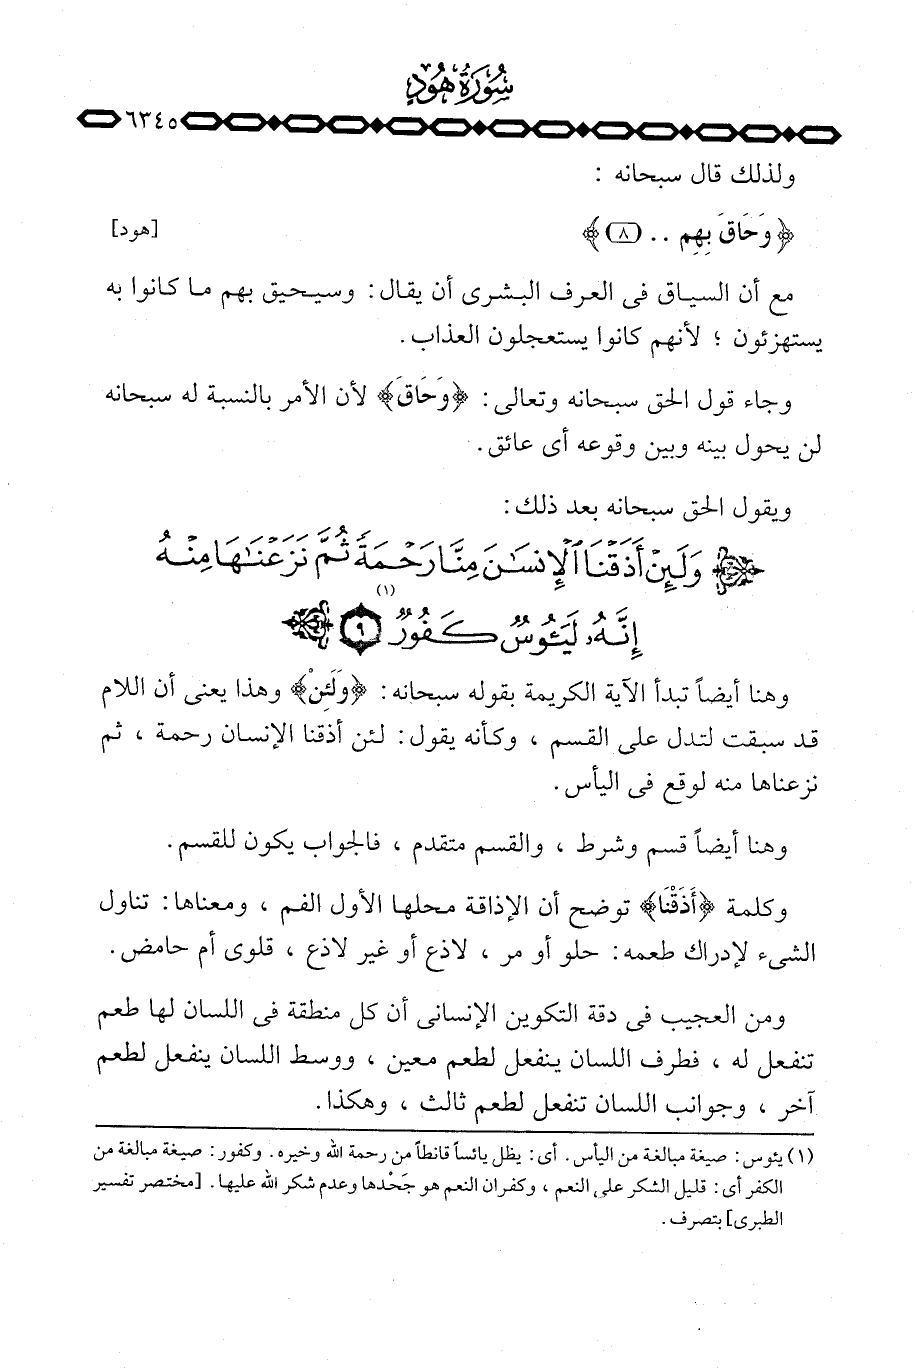 سُورَةُ هُودٍ
٦٣٤٥
ولذلك قال سبحانه :
﴿ وَحَاقَ بِهِم .. (٨) ﴾ [هود]
مع أن السياق فى العرف البشرى أن يقال : وسيحيق بهم ما كانوا به
يستهزئون ؛ لأنهم كانوا يستعجلون العذاب .
وجاء قول الحق سبحانه وتعالى : ﴿وَحَاقَ﴾ لأن الأمر بالنسبة له سبحانه
لن يحول بينه وبين وقوعه أى عائق .
ويقول الحق سبحانه بعد ذلك :
﴿ وَلَئِنْ أَذَقْنَا ٱلْإِنسَٰنَ مِنَّا رَحْمَةً ثُمَّ نَزَعْنَٰهَا مِنْهُ
إِنَّهُۥ لَيَـُٔوسٌ كَفُورٌ (١) ٩ ﴾
وهنا أيضاً تبدأ الآية الكريمة بقوله سبحانه : ﴿وَلَئِنْ﴾ وهذا يعنى أن اللام
قد سبقت لتدل على القسم ، وكأنه يقول : لئن أذقنا الإنسان رحمة ، ثم
نزعناها منه لوقع فى اليأس .
وهنا أيضاً قسم وشرط ، والقسم متقدم ، فالجواب يكون للقسم .
وكلمة ﴿أَذَقْنَا﴾ توضح أن الإذاقة محلها الأول الفم ، ومعناها : تناول
الشىء لإدراك طعمه : حلو أو مر ، لاذع أو غير لاذع ، قلوى أم حامض .
ومن العجيب فى دقة التكوين الإنسانى أن كل منطقة فى اللسان لها طعم
تنفعل له ، فطرف اللسان ينفعل لطعم معين ، ووسط اللسان ينفعل لطعم
آخر ، وجوانب اللسان تنفعل لطعم ثالث ، وهكذا .
(١) يئوس : صيغة مبالغة من اليأس . أى : يظل يائساً قانطاً من رحمة الله وخيره . وكفور : صيغة مبالغة من
الكفر أى : قليل الشكر على النعم ، وكفران النعم هو جَحْدها وعدم شكر الله عليها . [مختصر تفسير
الطبرى] بتصرف .